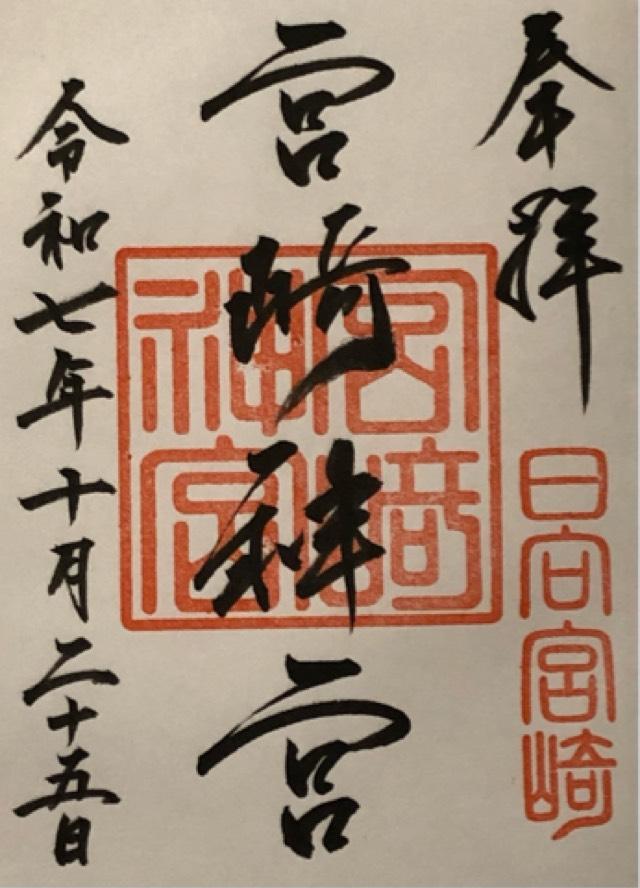 奉拝
日向宮崎
宮崎神宮
宮崎神宮
令和七年十月二十五日